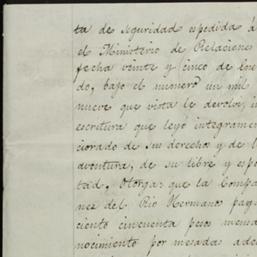 ta de seguridad espedida á
el Ministerio de Relaciones
fecha veinte y cinco de Ene
do, bajo el numero un mil
nueve que vista le devolví,
escritura que leyó integramen
ciorado de sus derechos y de l
aventura, de su libre y espo
tad, Otorga: que la Compa
nez del Rio Hermanos pag
ciento cincuenta pesos mensu
nocimiento por mesadas ade